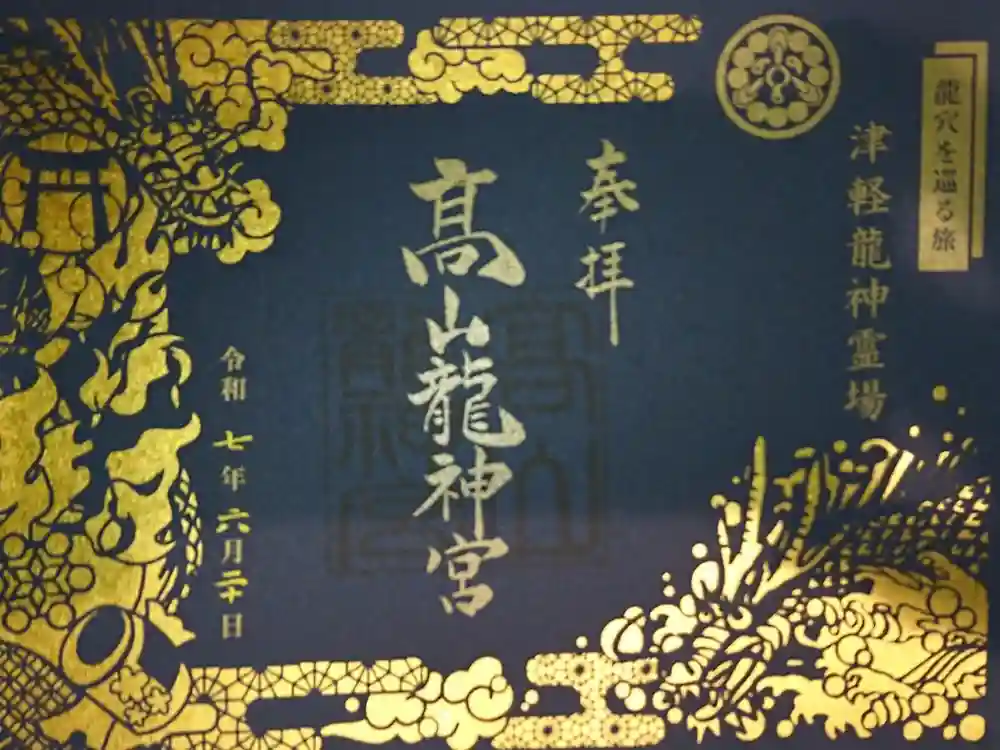 龍穴を巡る旅
津軽龍神霊場
奉拝
髙山龍神宮
令和七年六月二十日